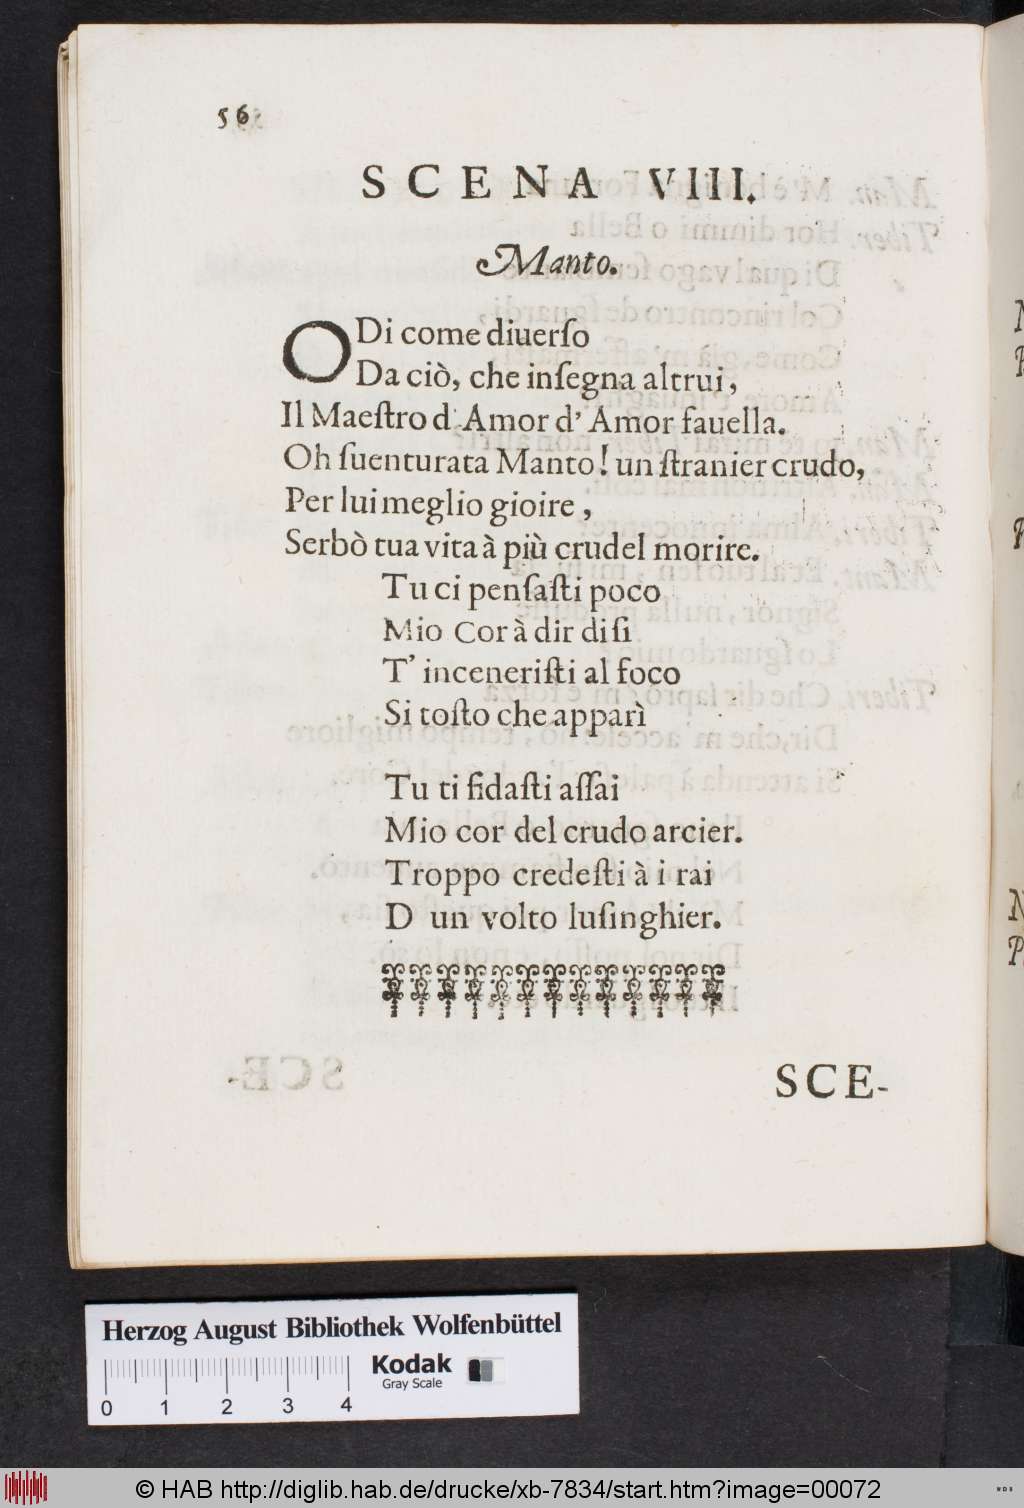 56
SCENA VIII.
Manto.
ODi come diuerſo
Da ciò, che inſegna altrui,
Il Maeſtro d' Amor d' Amor fauella.
Oh ſuenturata Manto! un ſtranier crudo,
Per lui meglio gioire,
Serbò tua vita à più crudel morire.
Tu ci penſaſti poco
Mio Cor à dir di ſi
T' inceneriſti al foco
Si toſto che apparì
Tu ti fidaſti aſſai
Mio cor del crudo arcier.
Troppo credeſti à i rai
D un volto luſinghier.
SCE-
Herzog August Bibliothek Wolfenbüttel
Kodak
Gray Scale
0 1 2 3 4
© HAB http://diglib.hab.de/drucke/xb-7834/start.htm?image=00072